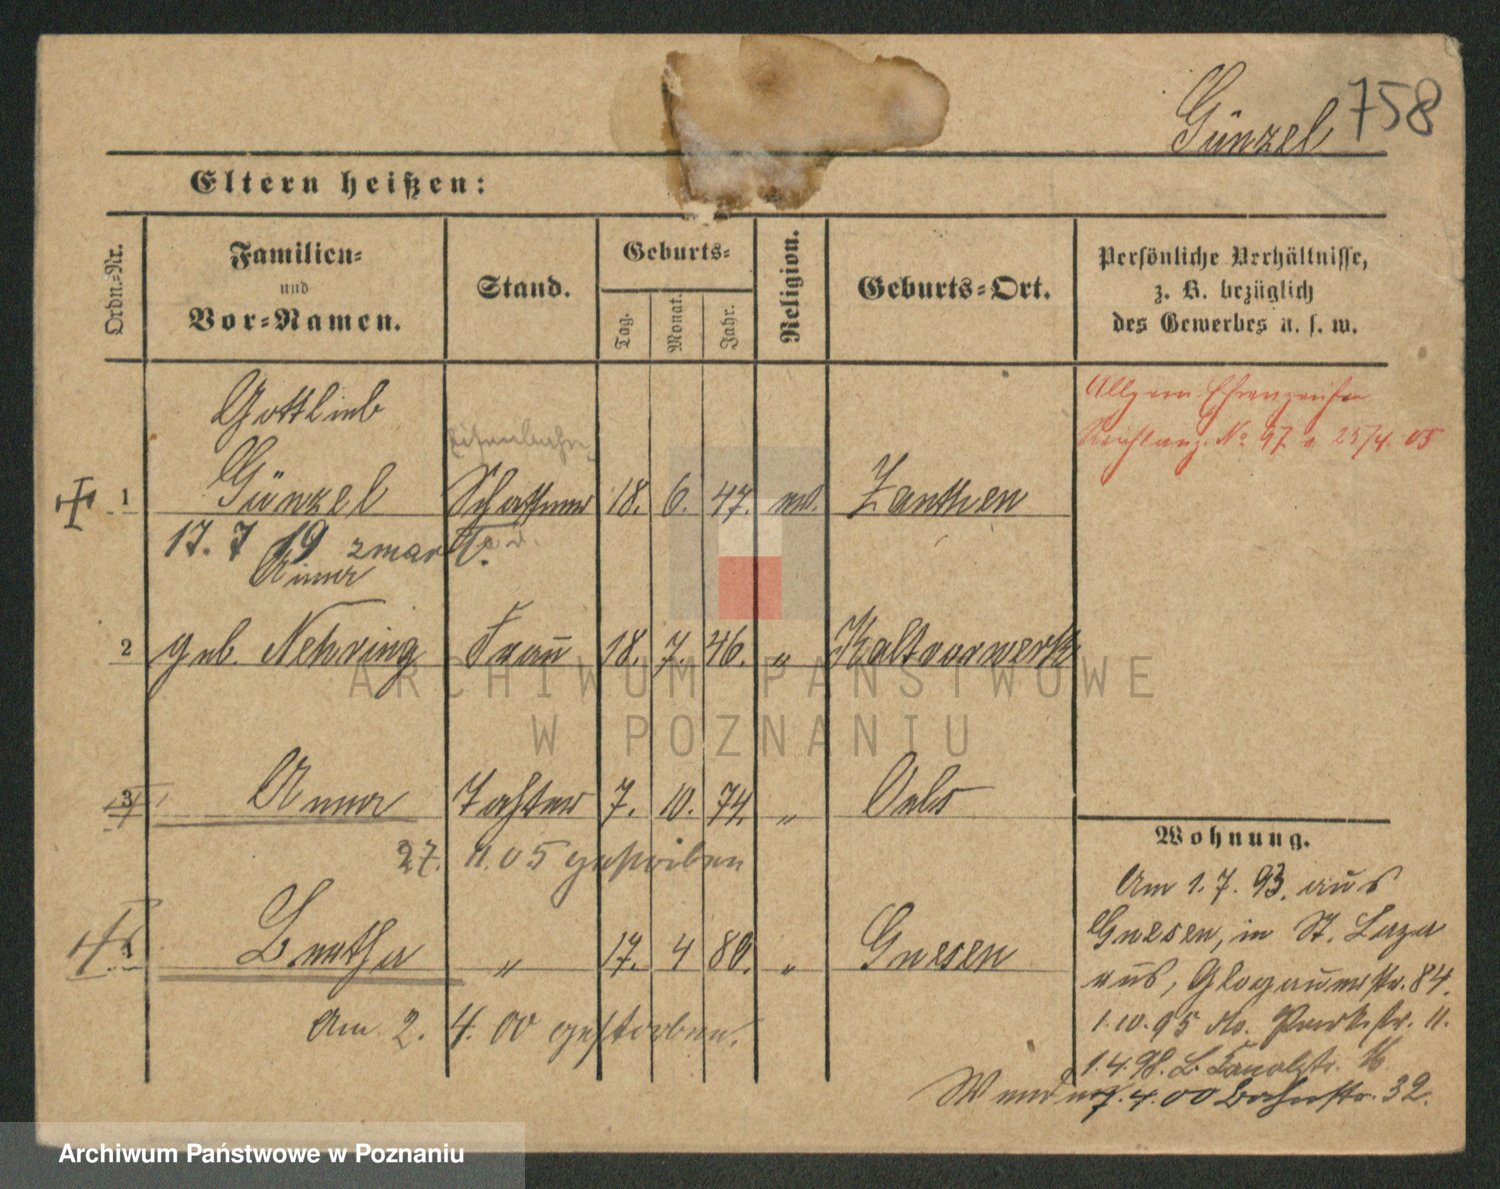 Günzel 758
Eltern heißen:
Ordn.-Nr.
Familien-
und
Vor-Namen.
Stand.
Geburts-
Tag.
Monat.
Jahr.
Religion.
Geburts-Ort.
Persönliche Verhältnisse,
z. B. bezüglich
des Gewerbes u. s. w.
Allgem. Ehrenzeichen
Reichsanz. No 97 v. 25/4. 05
Gottlieb
Eisenbahn
1 Günzel Schaffner 18. 6. 47. ev. Zanthen
17. 7 19 zmarł.
Anna
2 geb. Nehring Frau 18. 7. 46. " Kaltvorwerk
3 Anna Tochter 7. 10. 74. " Oels
27. 11. 05 gestorben
Bertha " 17. 4 80. " Gnesen
Am 2. 4. 00 gestorben.
Wohnung.
Am 1. 7. 93. aus
Gnesen, in St. Laza
rus, Glogauerstr. 84.
1. 10. 95 do. Parkstr. 11.
1. 4. 98. L. 16.
7. 4. 00 Bahnstr. 32.
ARCHIWUM PAŃSTWOWE
W POZNANIU
Archiwum Państwowe w Poznaniu